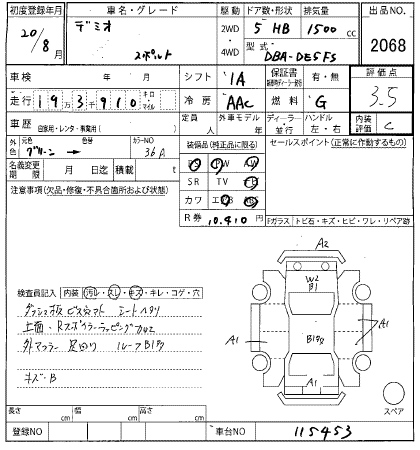 初度登録年月 車名・グレード 駆動 ドア数・形状 排気量 出品NO.
20/8月 デミオ スポルト 2WD 4WD 5 HB 1500 cc 2068
型式 DBA-DE5FS
車検 年 月 シフト IA 保証書 有・無 評価点
走行 19万3千910 キロ マイル 冷房 AAC 燃料 G 3.5
車歴 自家用・レンタ・事業用( ) 定員 人 外車モデル 年 ディーラー・並行 ハンドル 左・右 内装評価 C
外色 元色 グリーン 色替 カラーNO 36A 装備品(純正品に限る) セールスポイント(正常に作動するもの)
名義変更期限 月 日迄 積載 t PS PW
注意事項(欠品・修復・不具合箇所および状態) SR TV
カワ
R券 10,410円 Fガラス トビ石・キズ・ヒビ・ワレ・リペア跡
A2
検査員記入 内装 汚レ・スレ・キズ・キレ・コゲ・穴 W2
B1
シートヘタリ
A1 A1
外マフラー 足回り ルーフB1
キズ・B A1
スペア
長さ cm 幅 cm 高さ cm
登録NO 車台NO 115453